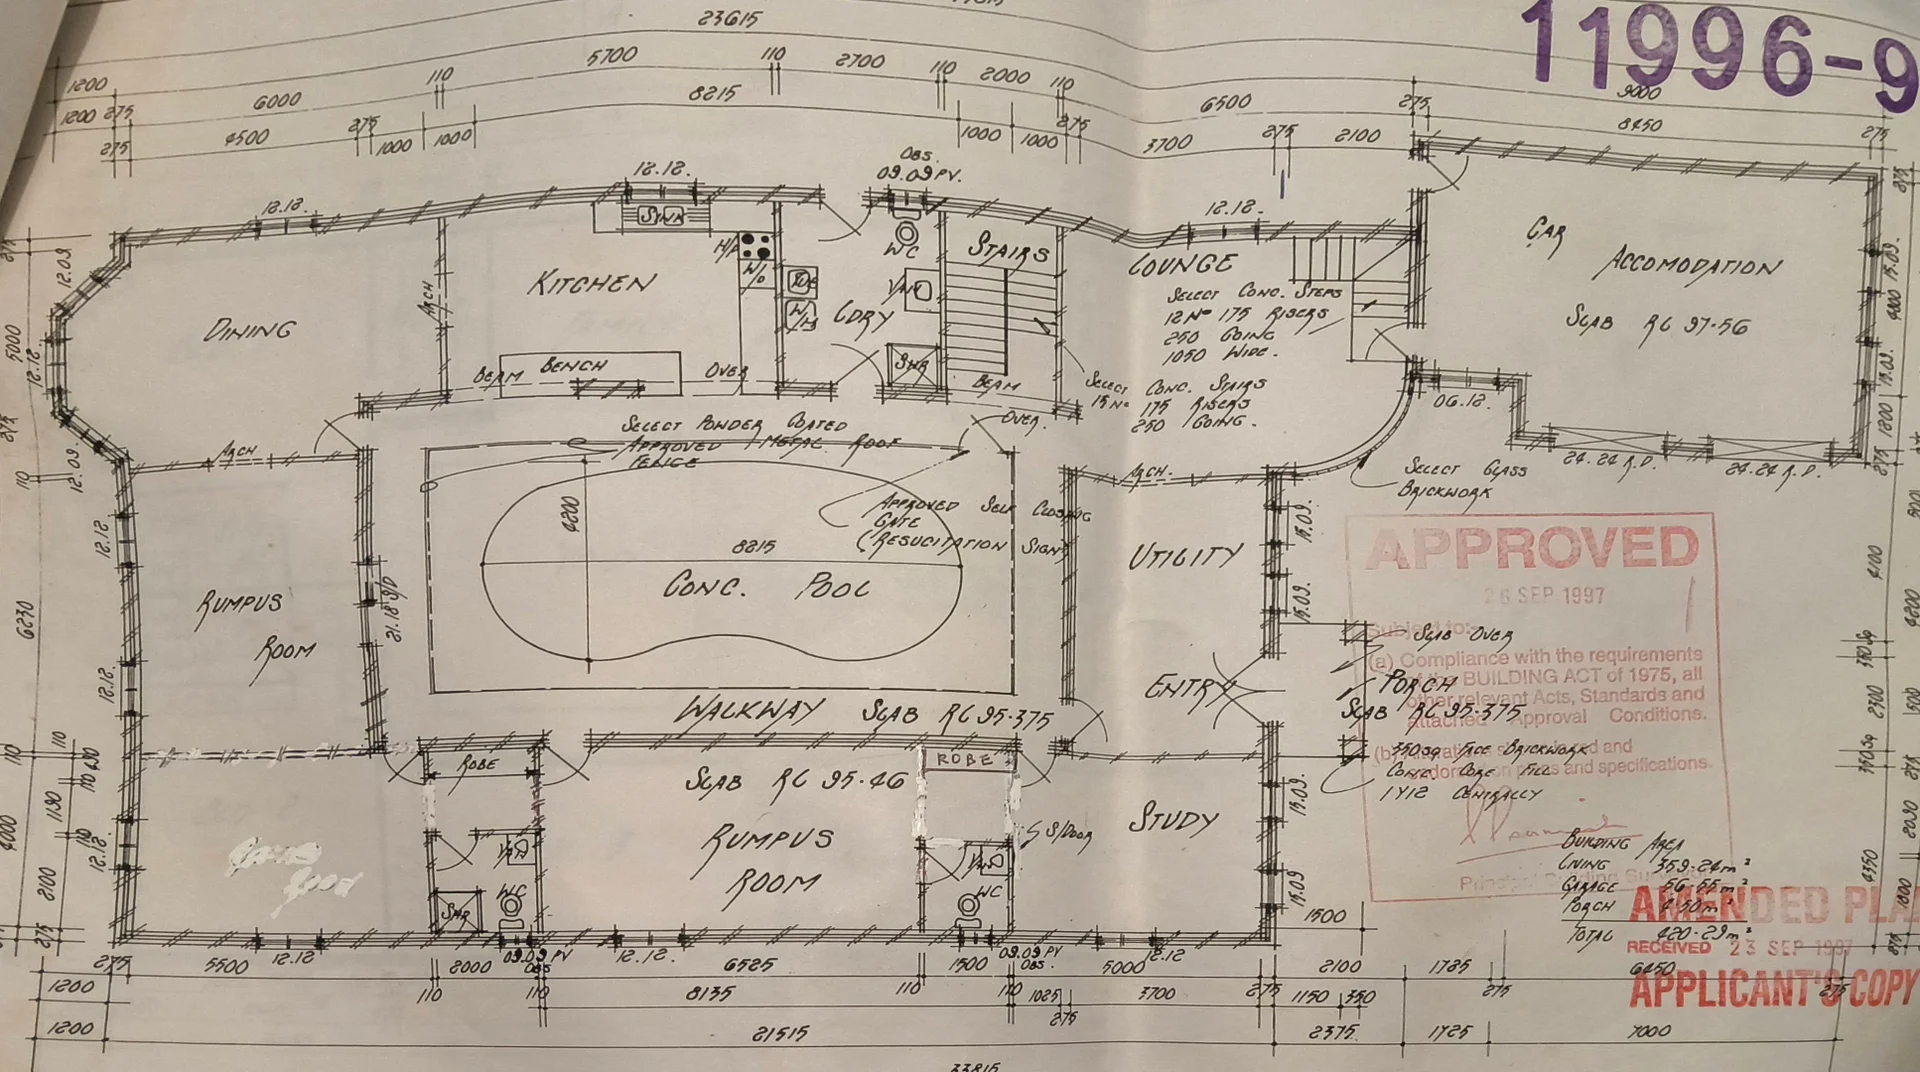 23615
11996-9
5700
110
2700
110
2000
110
1200
6000
8215
6500
275
9000
1200
275
4500
275
1000
1000
1000
1000
275
3700
275
2100
8450
275
275
OBS.
09.09 PV.
12.12.
12.12.
12.12.
SINK
H/P
W/O
WC
STAIRS
LOUNGE
CAR
ACCOMODATION
SLAB RL 97.56
KITCHEN
ARCH
DINING
LDRY
SELECT CONC. STEPS
12 No 175 RISERS
250 GOING
1050 WIDE.
12.09
5000
12.12
12.09
15.09.
15.09.
BENCH
BEAM
OVER
SHR
BEAM
OVER.
SELECT CONC. STAIRS
15 No 175 RISERS
250 GOING.
06.12.
24.24 R.D.
24.24 R.D.
SELECT POWDER COATED
APPROVED METAL ROOF
FENCE
ARCH
ARCH.
SELECT GLASS
BRICKWORK
4200
APPROVED SELF CLOSING
GATE
RESUCITATION SIGN
8215
CONC. POOL
12.12
21.18 S/D
RUMPUS
ROOM
6230
12.12
UTILITY
15.09.
15.09.
4100
APPROVED
26 SEP 1997
Subject to:-
(a) Compliance with the requirements
of the BUILDING ACT of 1975, all
other relevant Acts, Standards and
attached Approval Conditions.
SLAB OVER
PORCH
SLAB RL 95.375
350SQ FACE BRICKWORK
CONC. CORE FILL
1Y12 CENTRALLY
ENTRY
WALKWAY SLAB RL 95.375
350SQ
2300
350SQ
ROBE
ROBE
SLAB RL 95.46
RUMPUS
ROOM
S/DOOR
STUDY
15.09
15.09
110
1190
4000
2100
275
12.12
SHR
WC
WC
BUILDING AREA
LIVING 359.24m²
GARAGE 56.55m²
PORCH 4.50m²
TOTAL 420.29m²
AMENDED PLA
RECEIVED 23 SEP 1997
APPLICANT'S COPY
4350
275
5500
12.12
2000
09.09 PV
OBS
12.12.
6525
1500
09.09 PV
OBS.
5000
12.12
1500
2100
1725
6450
1200
110
110
8135
110
110
1025
3700
275
1150
350
275
275
275
1200
21515
2375
1725
7000
33815